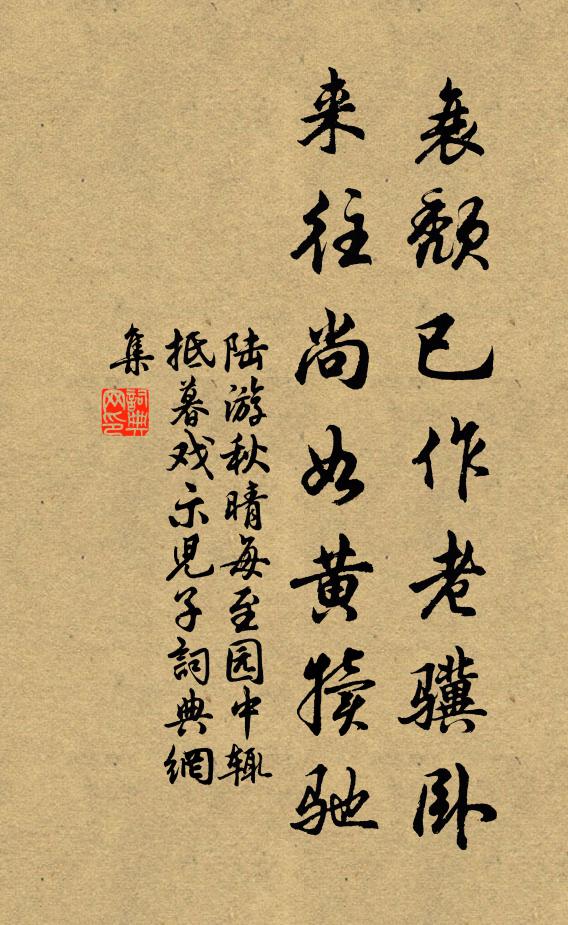 衰颓已作老骥卧
来往尚如黄犊驰
陆游秋晴每至园中辄
抵暮戏示儿子詞典網
集
詞典
网印